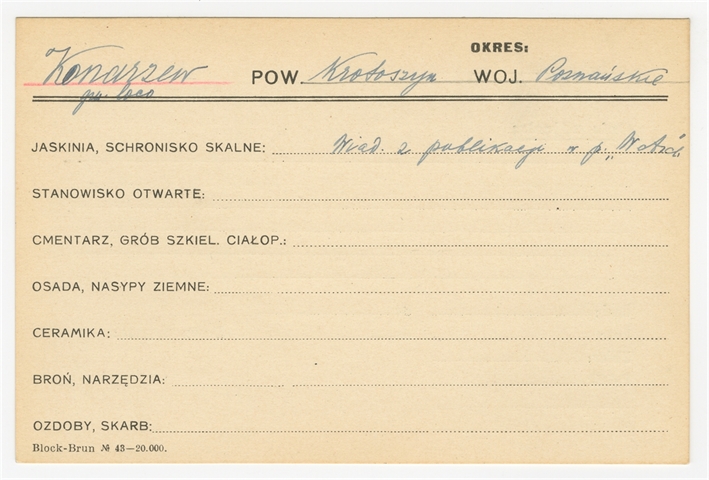 OKRES:
Konarzew POW. Krotoszyn WOJ. Poznańskie
pw. loco
JASKINIA, SCHRONISKO SKALNE: Wiad. z publikacji w p.
STANOWISKO OTWARTE:
CMENTARZ, GRÓB SZKIEL. CIAŁOP.:
OSADA, NASYPY ZIEMNE:
CERAMIKA:
BROŃ, NARZĘDZIA:
OZDOBY, SKARB:
Block-Brun № 43—20.000.